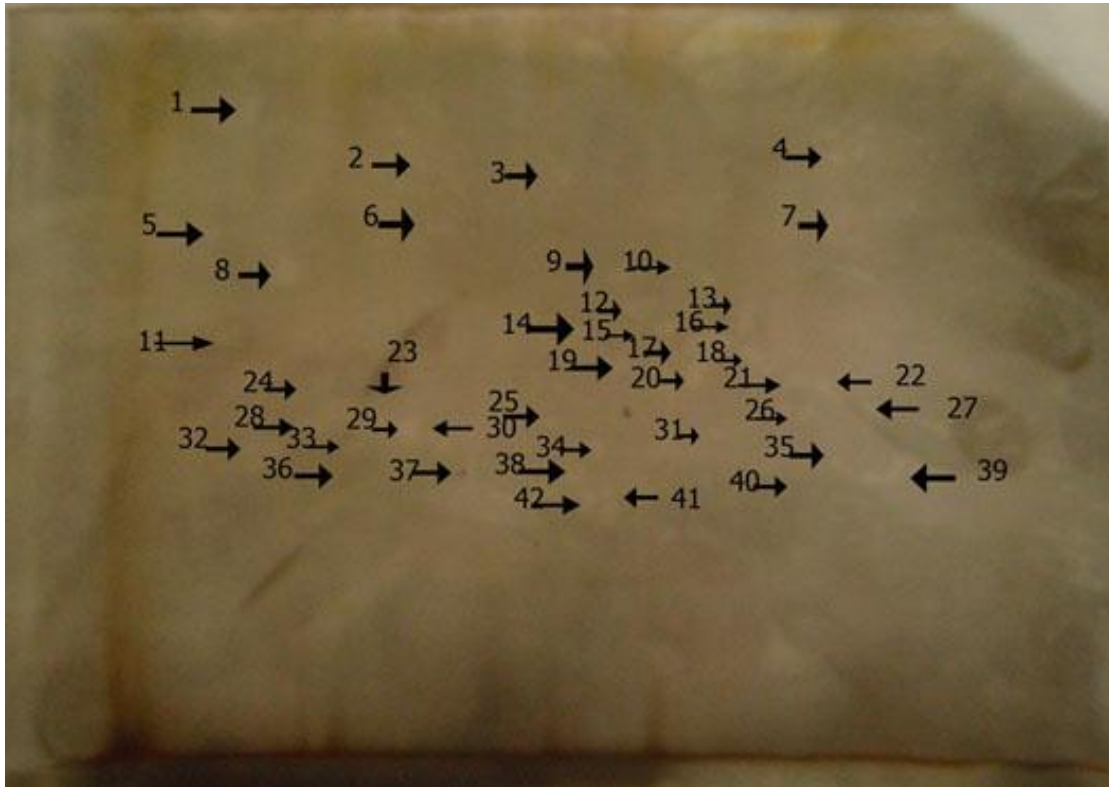 1
2 3 4
5 6 7
8 9 10
12 13
14 15 16
11 23 17 18
19 20 21 22
24 25 26 27
28 29 30 31
32 33 34 35
36 37 38 40 39
42 41